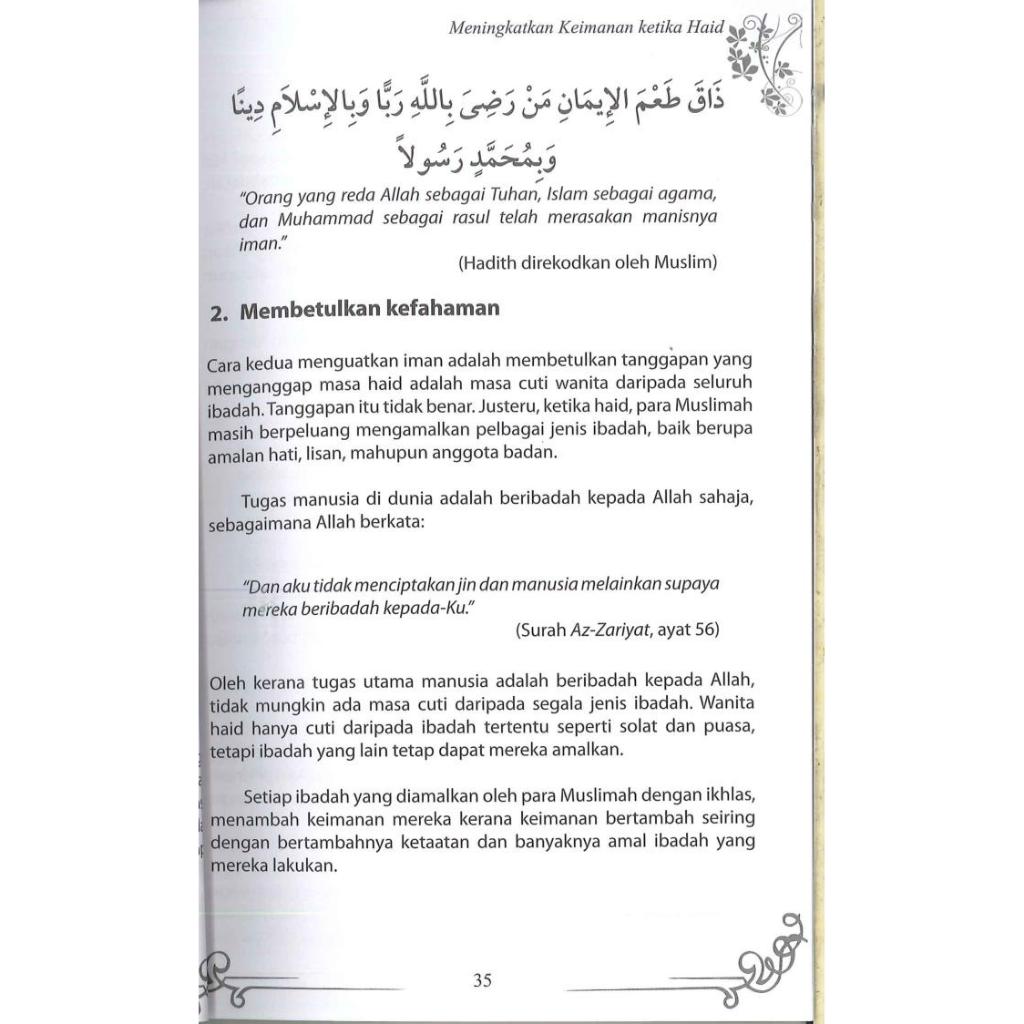 Meningkatkan Keimanan ketika Haid
ذَاقَ طَعْمَ الإِيمَانِ مَنْ رَضِيَ بِاللَّهِ رَبًّا وَبِالإِسْلاَمِ دِينًا
وَبِمُحَمَّدٍ رَسُولاً
“Orang yang reda Allah sebagai Tuhan, Islam sebagai agama,
dan Muhammad sebagai rasul telah merasakan manisnya
iman.”
(Hadith direkodkan oleh Muslim)
2. Membetulkan kefahaman
Cara kedua menguatkan iman adalah membetulkan tanggapan yang
menganggap masa haid adalah masa cuti wanita daripada seluruh
ibadah. Tanggapan itu tidak benar. Justeru, ketika haid, para Muslimah
masih berpeluang mengamalkan pelbagai jenis ibadah, baik berupa
amalan hati, lisan, mahupun anggota badan.
Tugas manusia di dunia adalah beribadah kepada Allah sahaja,
sebagaimana Allah berkata:
“Dan aku tidak menciptakan jin dan manusia melainkan supaya
mereka beribadah kepada-Ku.”
(Surah Az-Zariyat, ayat 56)
Oleh kerana tugas utama manusia adalah beribadah kepada Allah,
tidak mungkin ada masa cuti daripada segala jenis ibadah. Wanita
haid hanya cuti daripada ibadah tertentu seperti solat dan puasa,
tetapi ibadah yang lain tetap dapat mereka amalkan.
Setiap ibadah yang diamalkan oleh para Muslimah dengan ikhlas,
menambah keimanan mereka kerana keimanan bertambah seiring
dengan bertambahnya ketaatan dan banyaknya amal ibadah yang
mereka lakukan.
35